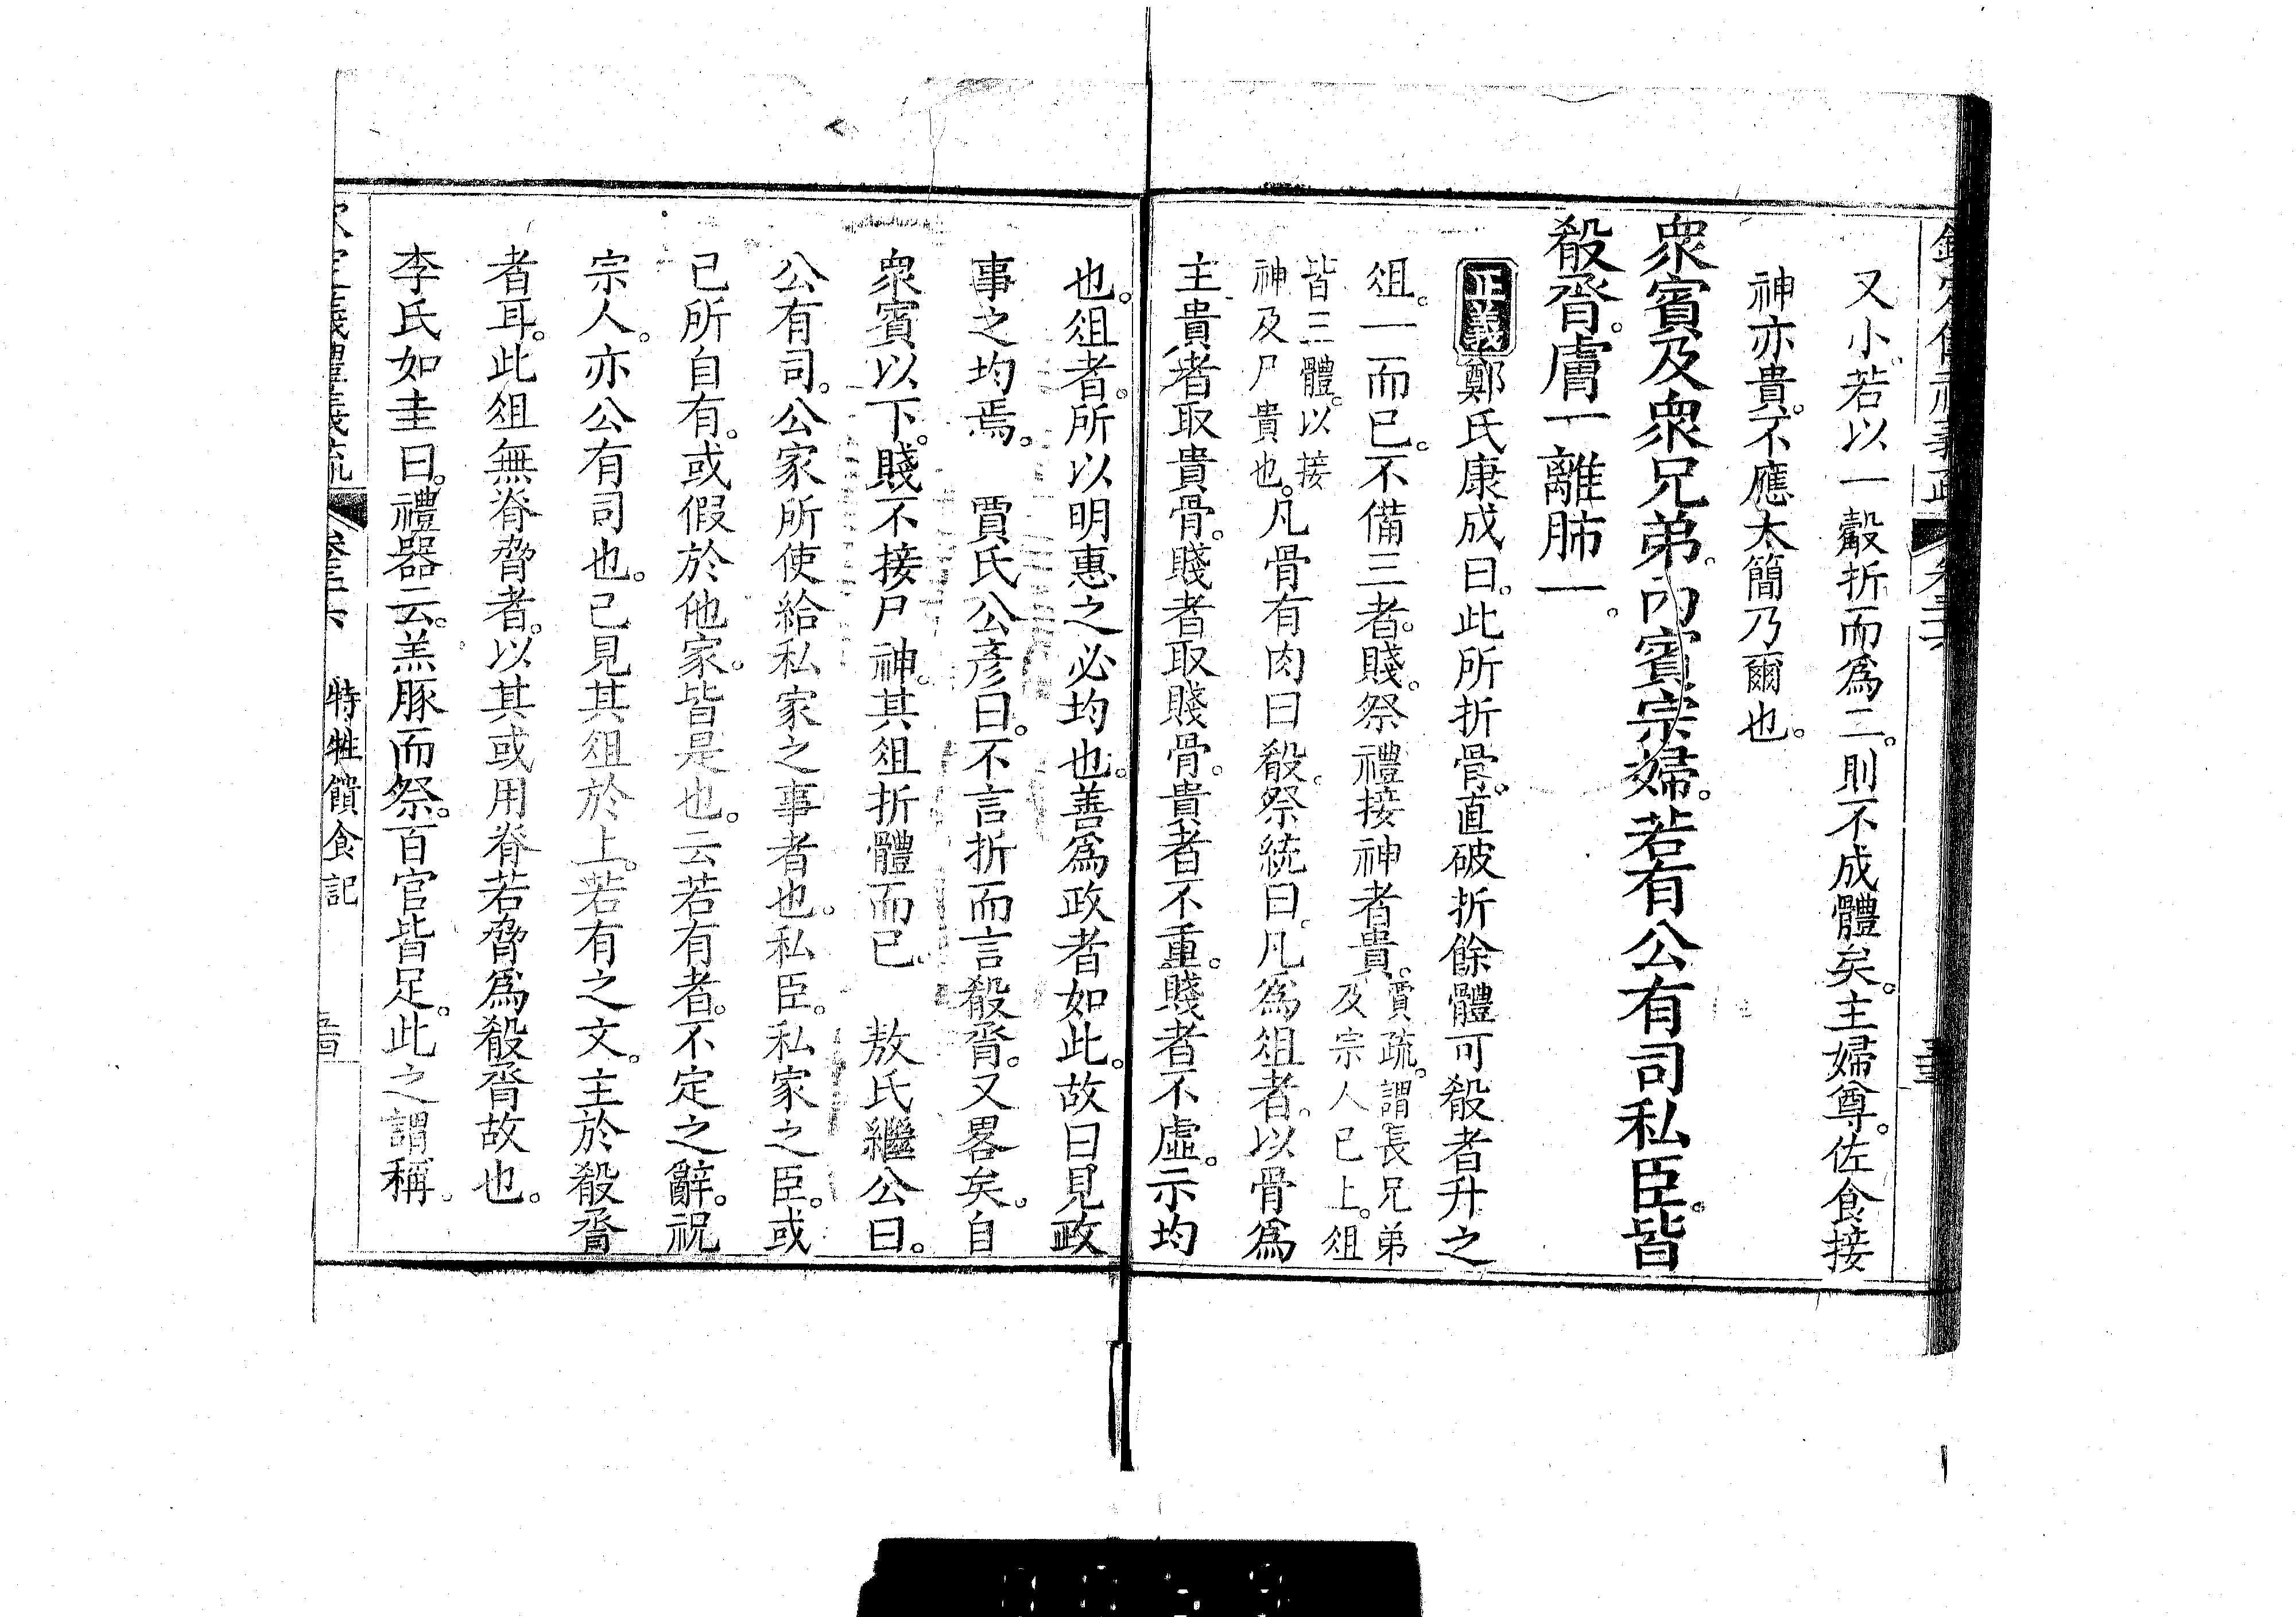 又小。若以一觳折而爲二。則不成體矣。主婦尊。佐食接
神亦貴。不應太簡乃爾也。
衆賓及衆兄弟。內賓宗婦。若有公有司私臣。皆
殽脀。膚一離肺一。
正義鄭氏康成曰。此所折骨。直破折餘體可殽者升之
俎。一而已。不備三者。賤。祭禮接神者貴。賈疏。謂長兄弟及宗人已上。俎
皆三體。以接神及尸貴也。凡骨有肉曰殽。祭統曰。凡爲俎者。以骨爲
主貴者取貴骨。賤者取賤骨。貴者不重。賤者不虛。示均
也。俎者。所以明惠之必均也。善爲政者如此。故曰見政
事之均焉。　賈氏公彥曰。不言折而言殽脀。又畧矣。自
衆賓以下。賤不接尸神。其俎折體而已　敖氏繼公曰。
公有司。公家所使給私家之事者也。私臣。私家之臣。或
己所自有。或假於他家。皆是也。云若有者。不定之辭。祝
宗人。亦公有司也。已見其俎於上。若有之文。主於殽脀
者耳。此俎無脊脅者。以其或用脊若脅爲殽脀故也。
李氏如圭曰。禮器云。羔豚而祭。百官皆足。此之謂稱。
欽定儀禮義疏　卷三十六　特牲饋食記